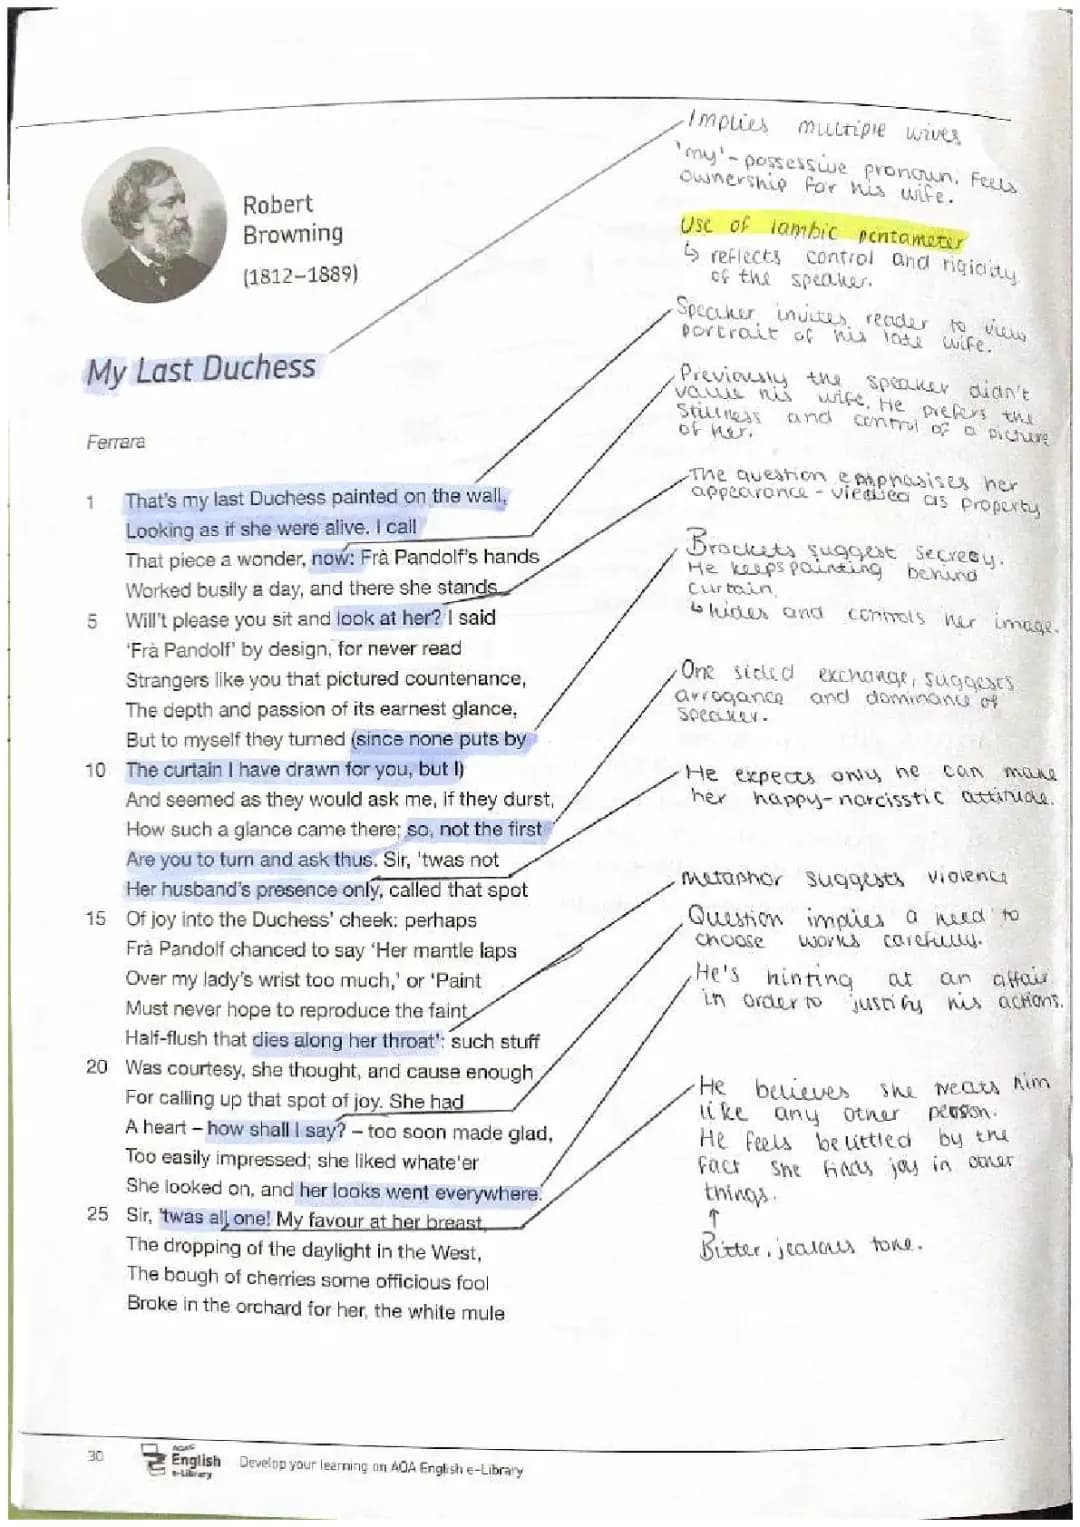 Robert
Browning
(1812–1889)
My Last Duchess
Ferrara
1 That's my last Duchess painted on the wall,
Looking as if she were alive. I call
That piece a wonder, now: Frà Pandolf's hands
Worked busily a day, and there she stands.
5 Will't please you sit and look at her? I said
'Frà Pandolf' by design, for never read
Strangers like you that pictured countenance,
The depth and passion of its earnest glance,
But to myself they turned (since none puts by
10 The curtain I have drawn for you, but I)
And seemed as they would ask me, if they durst,
How such a glance came there; so, not the first
Are you to turn and ask thus. Sir, 'twas not
Her husband's presence only, called that spot
15 Of joy into the Duchess' cheek: perhaps
Frà Pandolf chanced to say 'Her mantle laps
Over my lady's wrist too much,' or 'Paint
Must never hope to reproduce the faint
Half-flush that dies along her throat': such stuff
20 Was courtesy, she thought, and cause enough
For calling up that spot of joy. She had
A heart – how shall I say? – too soon made glad,
Too easily impressed; she liked whate'er
She looked on, and her looks went everywhere.
25 Sir, 'twas all one! My favour at her breast,
The dropping of the daylight in the West,
The bough of cherries some officious fool
Broke in the orchard for her, the white mule
Implies multiple wives
'my' - possessive pronoun. Feels
ownership for his wife.
Use of iambic pentameter
↳ reflects control and rigidity
of the speaker.
Speaker invites reader to view
portrait of his late wife.
Previously the speaker didn't
value his wife. He prefers the
stillness and control of a picture
of her.
The question emphasises her
appearance - viewed as property
Brackets suggest secrecy.
He keeps painting behind
curtain.
↳ hides and controls her image.
One sided exchange, suggests
arrogance and dominance of
speaker.
He expects only he can make
her happy - narcisstic attitude.
Metaphor suggests violence
Question implies a need to
choose works carefully.
He's hinting at an affair
in order to justify his actions.
He believes she treats him
like any other person.
He feels belittled by the
fact she finds joy in other
things.
↑
Bitter, jealous tone.
30
AQA
English
e-Library
Develop your learning on AQA English e-Library